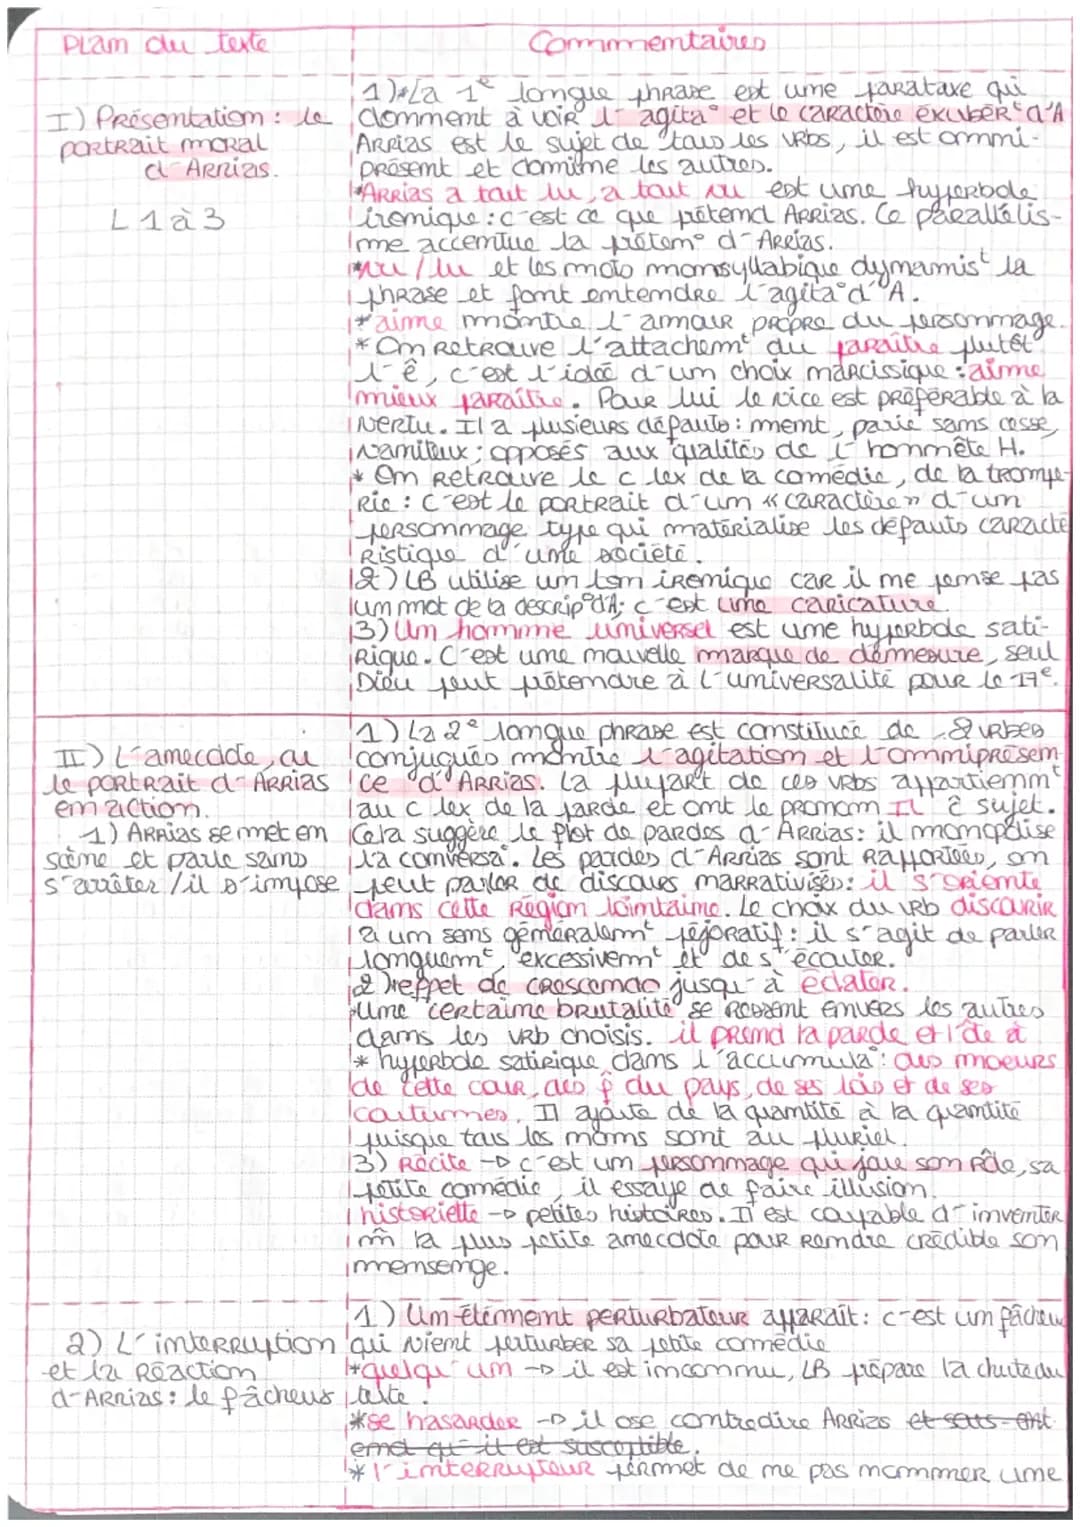 Plan du texte
Commentaires
I) Présentation : le
portrait moral
d'Arrias.
L 1 à 3
1)*La 1e longue phrase est une parataxe qui
donnent à voir l'agita° et le caractère exubért d'A
Arrias est le sujet de tous les vrbs, il est omni-
présent et domine les autres.
*Arrias a tout lu, a tout vu est une hyperbole
ironique : c'est ce que prétend Arrias. Ce parallélis-
me accentue la préten° d'Arrias.
*vu/lu et les mots monsyllabique dynamist la
phrase et font entendre l'agita° d'A.
*aime montre l'amour propre du personnage.
*On retrouve l'attachemt du paraître plutôt
l'ê, c'est l'idée d'un choix narcissique : aime
mieux paraître. Pour lui le vice est préférable à la
vertu. Il a plusieurs défauts : ment, parle sans cesse,
vaniteux ; opposés aux qualités de l'honnête H.
* On retrouve le c lex de la comédie, de la trompe-
rie : c'est le portrait d'un « caractère » d'un
personnage type qui matérialise les défauts caracté
ristique d'une société.
2) LB utilise un ton ironique car il ne pense pas
un mot de la descrip° d'A; c'est une caricature.
3) Un homme universel est une hyperbole sati-
rique. C'est une nouvelle marque de démesure, seul
Dieu peut prétendre à l'universalité pour le 17e.
II) L'anecdote, ou
le portrait d'Arrias
en action.
1) Arrias se met en
scène et parle sans
s'arrêter / il s'impose
1) La 2e longue phrase est constituée de 8 vrbes
conjugués montre l'agitation et l'omniprésen
ce d'Arrias. La plupart de ces vrbs appartiennt
au c lex de la parole et ont le pronom Il c̄ sujet.
Cela suggère le flot de paroles d'Arrias : il monopolise
la conversa°. Les paroles d'Arrias sont rapportées, on
peut parler de discours narrativisés : il s'oriente
dans cette région lointaine. Le choix du vrb discourir
a un sens généralemt péjoratif : il s'agit de parler
longuemt, excessivemt et de s'écouter.
2) *effet de crescendo jusqu'à éclater.
*Une certaine brutalité se ressent envers les autres
dans les vrb choisis. il prend la parole et l'ôte à
* hyperbole satirique dans l'accumula° : des moeurs
de cette cour, des f du pays, de ses lois et de ses
coutumes. Il ajoute de la quantité à la quantité
puisque tous les noms sont au pluriel.
3) Récite → c'est un personnage qui joue son rôle, sa
petite comédie, il essaye de faire illusion.
historiette → petites histoires. Il est capable d'inventer
m̂ la plus petite anecdote pour rendre crédible son
mensenge.
2) L'interruption
et la réaction
d'Arrias : le fâcheux
1) Un élément perturbateur apparaît : c'est un fâcheux
qui vient perturber sa petite comédie
*quelqu'un → il est inconnu, LB prépare la chute du
texte.
*se hasarder → il ose contredire Arrias et sous-ent
end qu'il est susceptible.
*l'interrupteur permet de ne pas nommer une